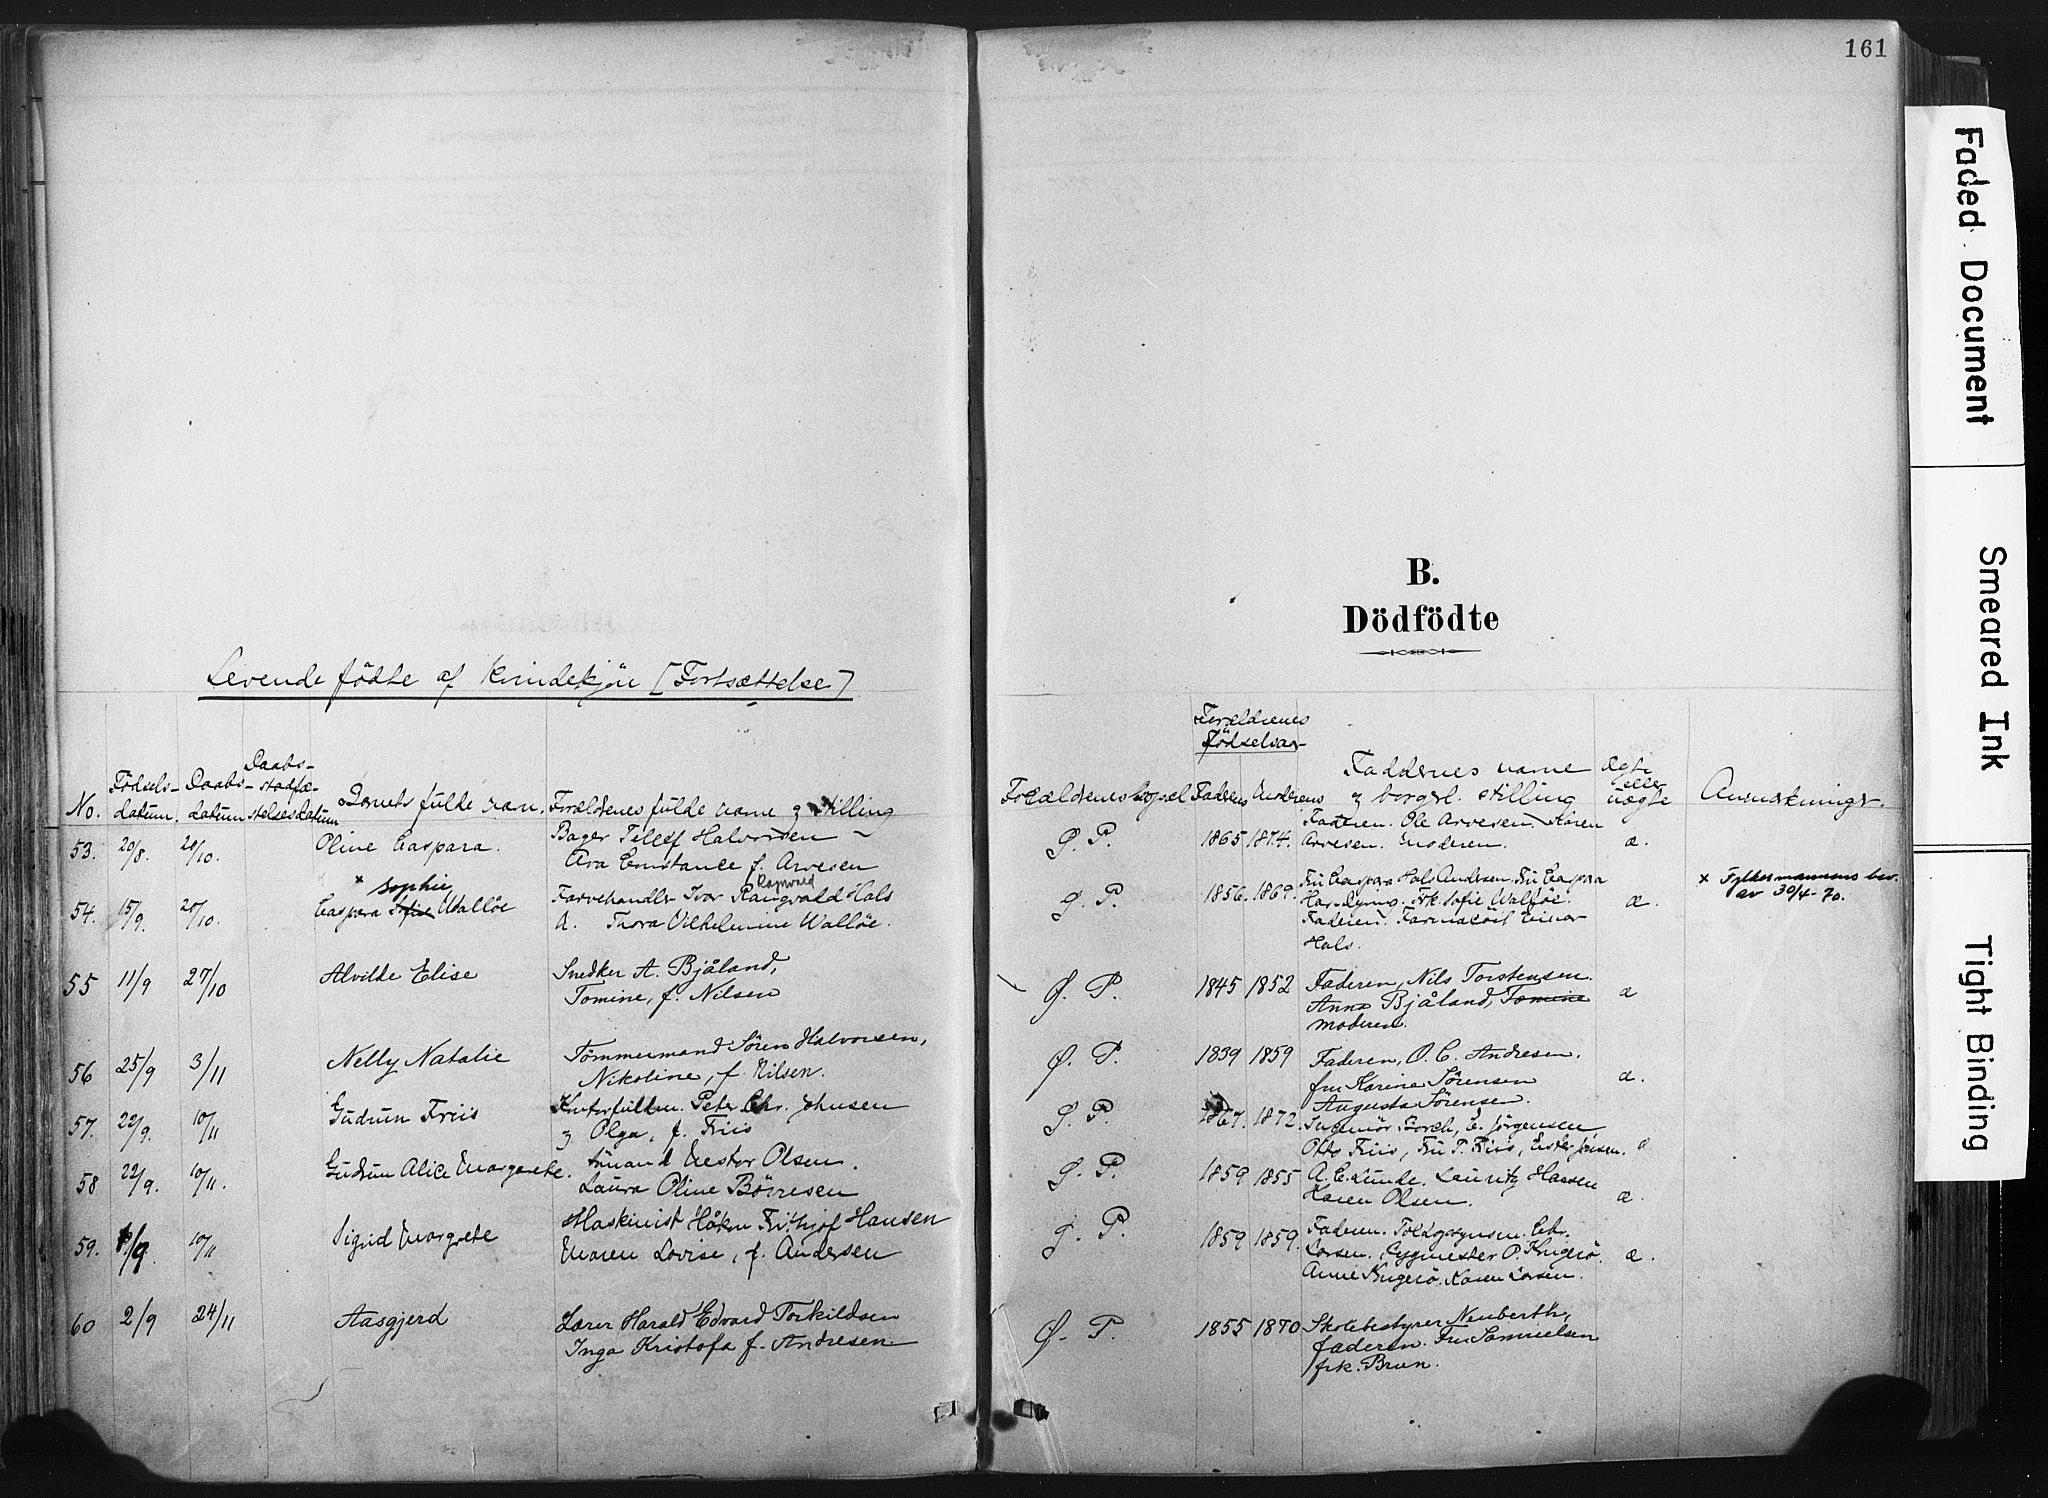 161
B.
Dödfödte
Levende födte af Kvindekjön [Fortsættelse]
No.
Födsels-
datum.
Daabs-
datum
Daabs-
stadfæ-
stelsesdatum
Barnets fulde navn.
Forældrenes fulde navne & stilling
Forældrenes bopæl
Forældrenes
Födselsaar
Faderens
Moderens
Faddernes navne
& borgerl. stilling
Ægte
eller
uægte
Anmerkninger.
53. 20/8. 20/10. Oline Caspara. Bager Tellef Halvorsen
Ava Constance f. Arvesen
Ø. P. 1865 1874. Faderen. Ole Arvesen. Karen
Arvesen. Moderen. æ.
54. 15/9. 20/10. × Sophie
Caspara Sofie Walløe
Farvehandler Ivar Rangvald Hals
Ragnvald
Thora Vilhelmine Walløe.
Ø. P. 1856. 1869. Fru Caspara Hals Andersen. Fru Caspara
Frk. Sofie Walløe.
Faderen. Farmaceut Einar
Hals. æ.
× Fylkesmannens bev.
av 30/4-70.
55 11/9 27/10 Alvilde Elise Snedker A. Bjåland,
Tomine, f. Nilsen
Ø. P. 1845 1852 Faderen, Nils Torstensen.
Anna Bjåland, Tomine
moderen. æ
56 25/9 3/11 Nelly Natalie Tömmermand Sören Halvorsen,
Nikoline, f. Nilsen.
Ø. P. 1839 1859 Faderen, O. C. Andresen.
fru Karine Sörensen
Augusta Sörensen. æ.
57. 22/9. 10/11 Gudrun Friis Kontorfuldm. Peter Chr. Johnsen
& Olga, f. Friis
Ø. P. 1867. 1872. Ingeniör Borch, C. Jörgensen
Otto Friis, Fru P. Friis, Ester Jensen. æ
58 22/9. 10/11. Gudrun Alice Margarete. Sömand Nestor Olsen.
Laura Oline Börresen
Ø. P. 1859 1855 A. C. Lunde. Lauritz Hansen
Karen Olsen. æ.
59. 1/9 10/11 Sigrid Margrete Maskinist Håkon Frithjof Hansen
Maren Lovise, f. Andersen
Ø. P. 1859 1859. Faderen. Toldopsynsm. Chr.
Larsen. Bygmester P. Kragerö.
Anne Kragerö. Karen Larsen. æ.
60 2/9 24/11 Aasgjerd Lærer Harald Edvard Torkildsen
Inga Kristofa f. Andresen
Ø. P. 1855 1870 Skolebestyrer Neuberth,
faderen. Fru Samuelsen
frk. Brun.
Faded Document
Smeared Ink
Tight Binding